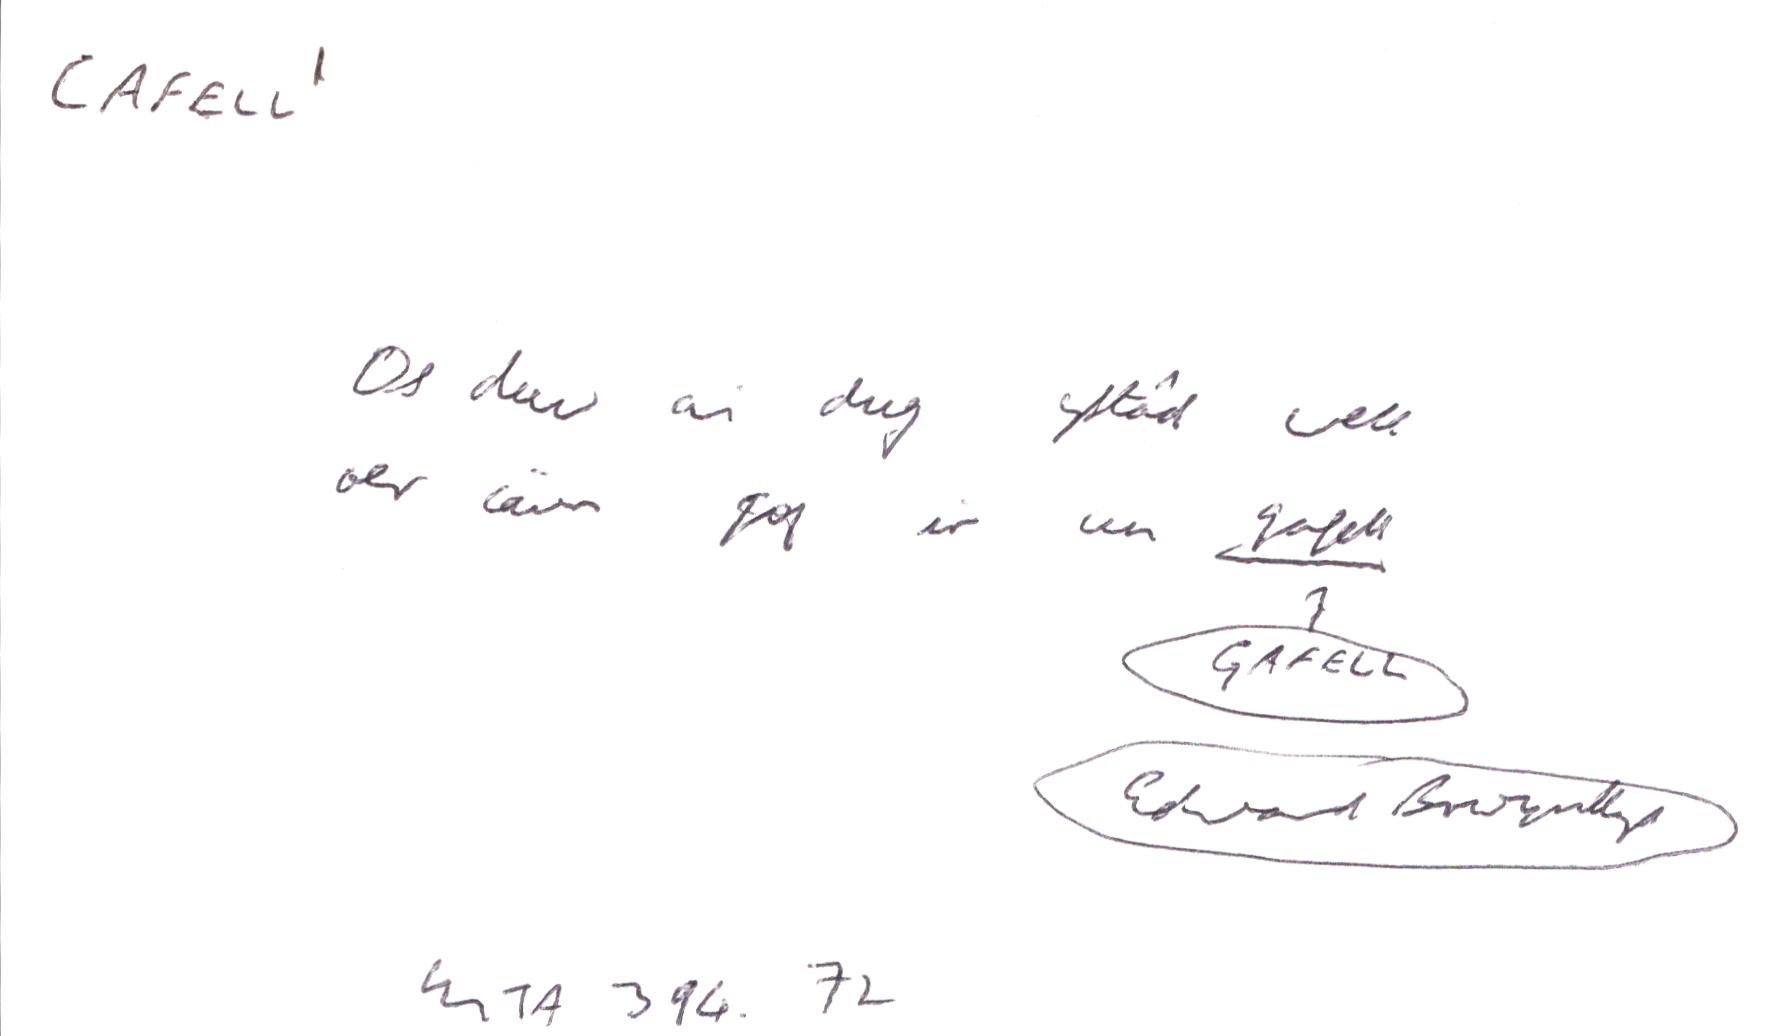 CAFELL¹
Os duw ai dug ystâd well
oer iawn gof ir un gafell
GAFELL
Edward Brwynllys
TA 394. 72